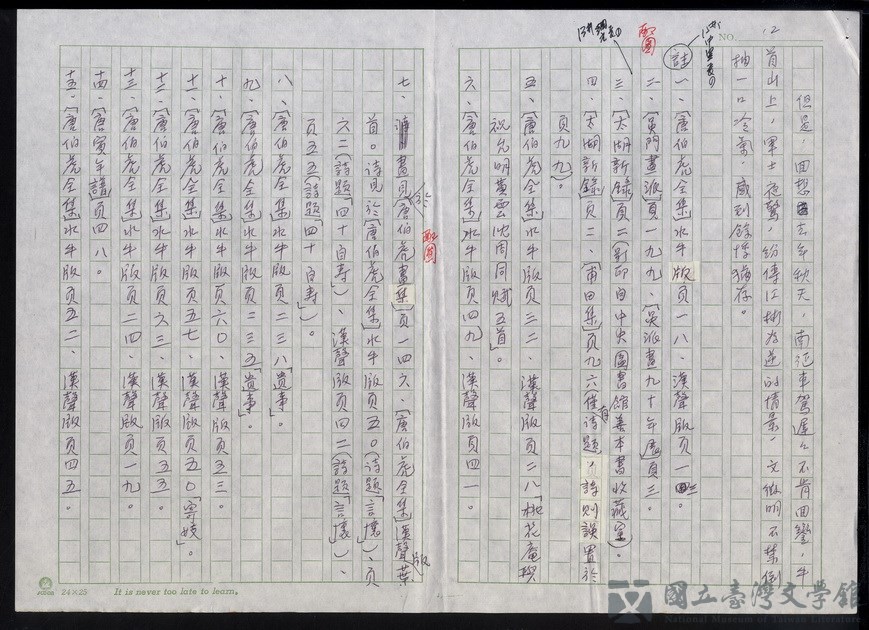 12
NO.
但是，回想去年秋天，南征車駕遲遲不肯回鑾，牛
首山上，軍士夜驚，紛傳江彬為逆的情景，文徵明不禁倒
抽一口冷氣，感到餘悸猶存。
註一、〔唐伯虎全集〕水牛版頁一八、漢聲版頁一三。
二、〔吳門畫派〕頁一九九、〔吳派畫九十年展〕頁三。
三、〔太湖新錄〕頁二（影印自中央圖書館善本書收藏室）。
四、〔太湖新錄〕頁二、〔甫田集〕頁九六（僅有詩題，詩則誤置於
頁九九）。
五、〔唐伯虎全集〕水牛版頁三二、漢聲版頁二八「桃花庵與
祝允明黃雲沈周同賦五首」。
六、〔唐伯虎全集〕水牛版頁四九、漢聲版頁四一。
七、畫見於〔唐伯虎畫集〕頁一四六、〔唐伯虎全集〕漢聲版葉
首。詩見於〔唐伯虎全集〕水牛版頁五〇（詩題「言懷」）、頁
六二（詩題「四十自壽」）、漢聲版頁四二（詩題「言懷」）、
頁五五（詩題「四十自壽」）。
八、〔唐伯虎全集〕水牛版頁二三八「遺事」。
九、〔唐伯虎全集〕水牛版頁二三五「遺事」。
十、〔唐伯虎全集〕水牛版頁六〇、漢聲版頁五三。
十一、〔唐伯虎全集〕水牛版頁五七、漢聲版頁五〇「寄妓」。
十二、〔唐伯虎全集〕水牛版頁六三、漢聲版頁五五。
十三、〔唐伯虎全集〕水牛版頁二四、漢聲版頁一九。
十四、〔唐寅年譜〕頁四八。
十五、〔唐伯虎全集〕水牛版頁五二、漢聲版頁四五。
24×25
It is never too late to learn.
國立臺灣文學館
National Museum of Taiwan Literature